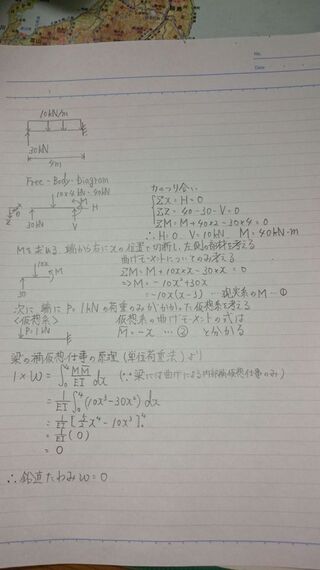 No.
Date
10kN/m
30kN
4m
Free-Body-Diagram
10×4kN=40kN
M
H
30kN
V
力のつり合い
ΣX = H = 0
ΣZ = 40-30-V = 0
ΣM = M+40×2-30×4=0
∴ H=0 V=10kN, M=40kN·m
Mを求める、端から右にxの位置で切断し、左側の部材を考える
10x
M
30
曲げモーメントについてのみ考える
ΣM = M+10x×x-30×x = 0
⇒ M = -10x²+30x
= -10x(x-3) … 現実系のM ー①
次に端にP=1kNの荷重のみがかかった仮想系を考える
<仮想系>
P=1kN
仮想系の曲げモーメントの式は
M̄ = -x … ② とわかる
梁の補仮想仕事の原理(単位荷重法)より
1×W = ∫₀⁴ MM̄/EI dx (∵梁には曲げによる内部補仮想仕事のみ)
= 1/EI ∫₀⁴ (10x³-30x²) dx
= 1/EI [5/2 x⁴ - 10x³]₀⁴
= 1/EI (0)
= 0
∴ 鉛直たわみ w = 0